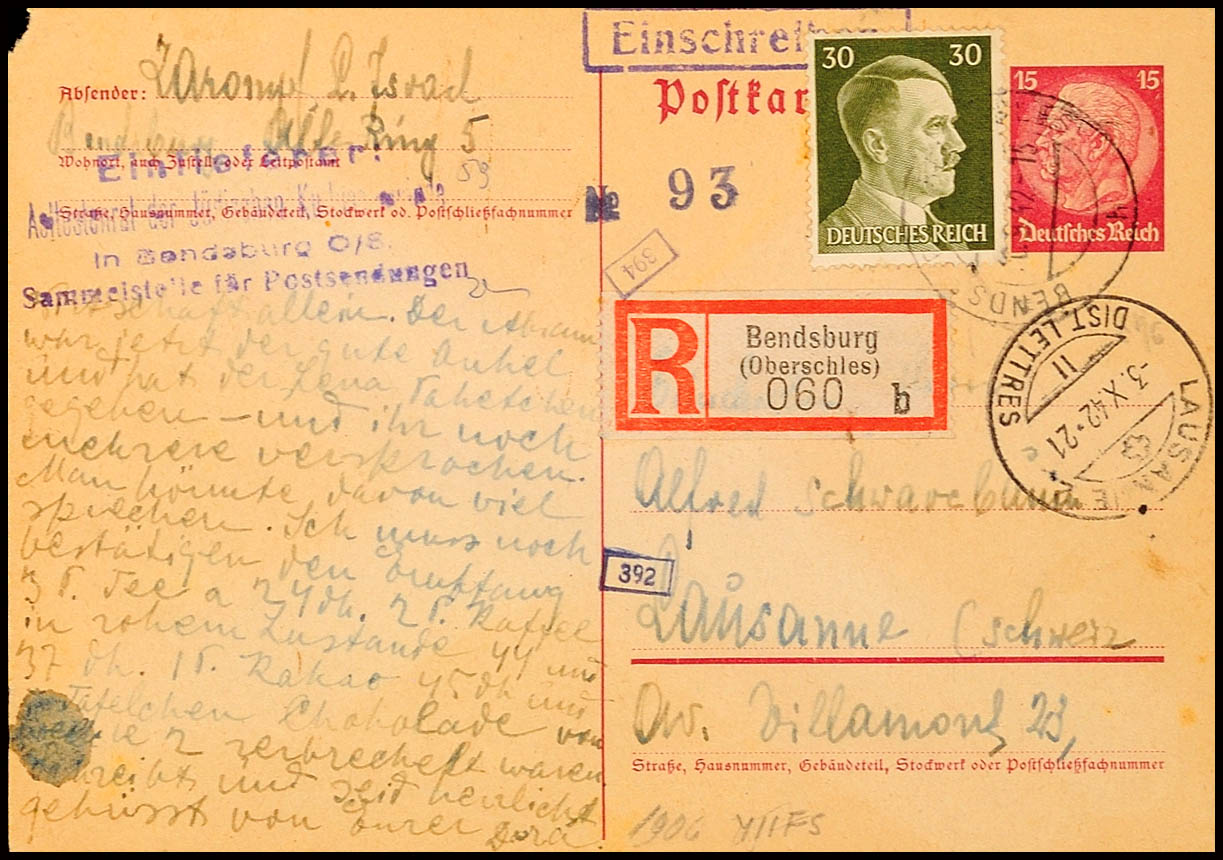 Einschrei
Postkar
30 30
DEUTSCHES REICH
15 15
Deutsches Reich
Absender:
L. Israel
Bendsburg Alter Ring 5
59
Wohnort, auch Zustell- oder Leitpostamt
Einlieferer:
Aeltestenrat der Jüdischen Kultusgemeinde
Straße, Hausnummer, Gebäudeteil, Stockwerk od. Postschließfachnummer
in Bendsburg O/S.
Sammelstelle für Postsendungen
№ 93
394
BENDS
R
Bendsburg
(Oberschles)
060 b
LAUSANNE
DIST. LETTRES
II
-3.X.42-21
allein. Der Abram
war jetzt der gute Onkel
und hat der Lena
gegeben – und ihr noch
mehrere versprochen.
Man könnte davon viel
sprechen. Ich muss noch
bestätigen den Empfang
3 P. Tee a 24 dk. 2 P. Kaffee
in rohem Zustande 44 und
37 dk. 1 P. Kakao 45 dk und
Täfelchen Chokolade von
2 zerbrechelt waren
schreibt und seid herzlichst
geküsst von Eurer Dora
Alfred Schwarcbaum
392
Lausanne (Schweiz
Av. Villamont 23,
Straße, Hausnummer, Gebäudeteil, Stockwerk oder Postschließfachnummer
1906